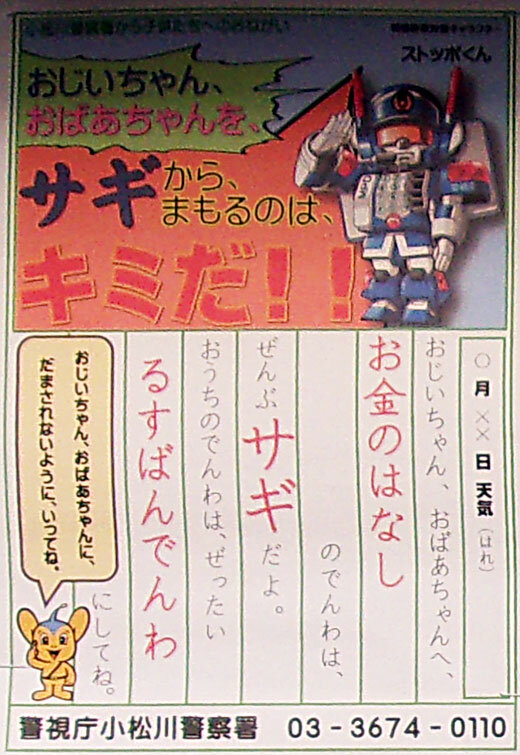 小松川警察署から子供たちへのおねがい
ストッポくん
おじいちゃん、
おばあちゃんを、
サギから、
まもるのは、
キミだ!!
○月××日 天気(はれ)
おじいちゃん、おばあちゃんへ、
お金のはなし
のでんわは、
ぜんぶサギだよ。
おうちのでんわは、ぜったい
るすばんでんわ
にしてね。
おじいちゃん、おばあちゃんに、
だまされないように、いってね。
警視庁小松川警察署 03-3674-0110